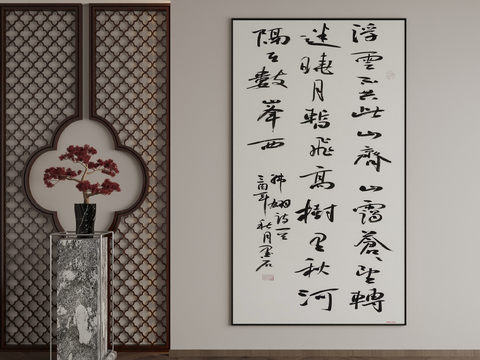 浮雲不共此山齊山靄蒼々望轉
迷曉月暫飛高樹里秋河
隔在數峯西
韩翃詩一首
年秋月